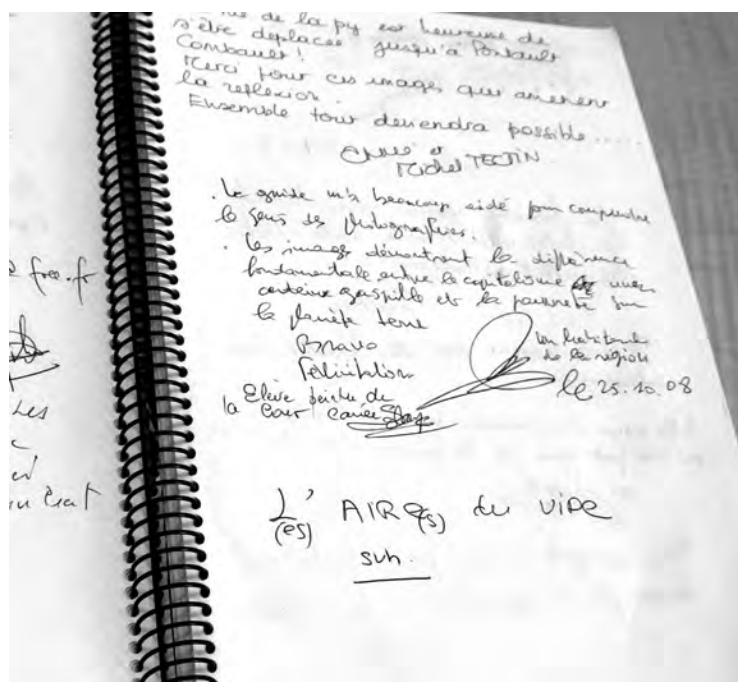 de la py est heureuse de
s'être déplacée jusqu'à Pontault
Combault!
Merci pour ces images qui amènent
la reflexion.
Ensemble tout deviendra possible.....
et
Michel
. Le guide m'a beaucoup aidé pour comprendre
le sens des photographies.
. Les images démontrent la différence
fondamentale entre le capitalisme une
certaine gaspille et la pauvreté sur
la planète terre
Bravo
Félicitations
un habitant
de la région
le 25.10.08
Elève peintre de
la Cour Carrée
L'(es) AIRE(s) du VIDE
sur.
free.fr